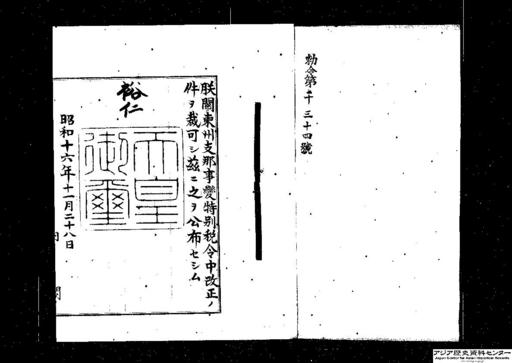 勅令第千三十四號
朕關東州支那事變特別税令中改正ノ
件ヲ裁可シ茲ニ之ヲ公布セシム
裕仁
天皇
御璽
昭和十六年十一月二十八日
アジア歴史資料センター
Japan Center for Asian Historical Records